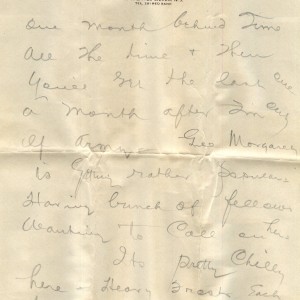 One month behind Time
all the time & then
you'll get the last one
a month after I'm
of Geo Morganey
is getting rather
Having bunch of fellows
wanting to Call on her
Its pretty Chilly
here - Heavy Frosts Each